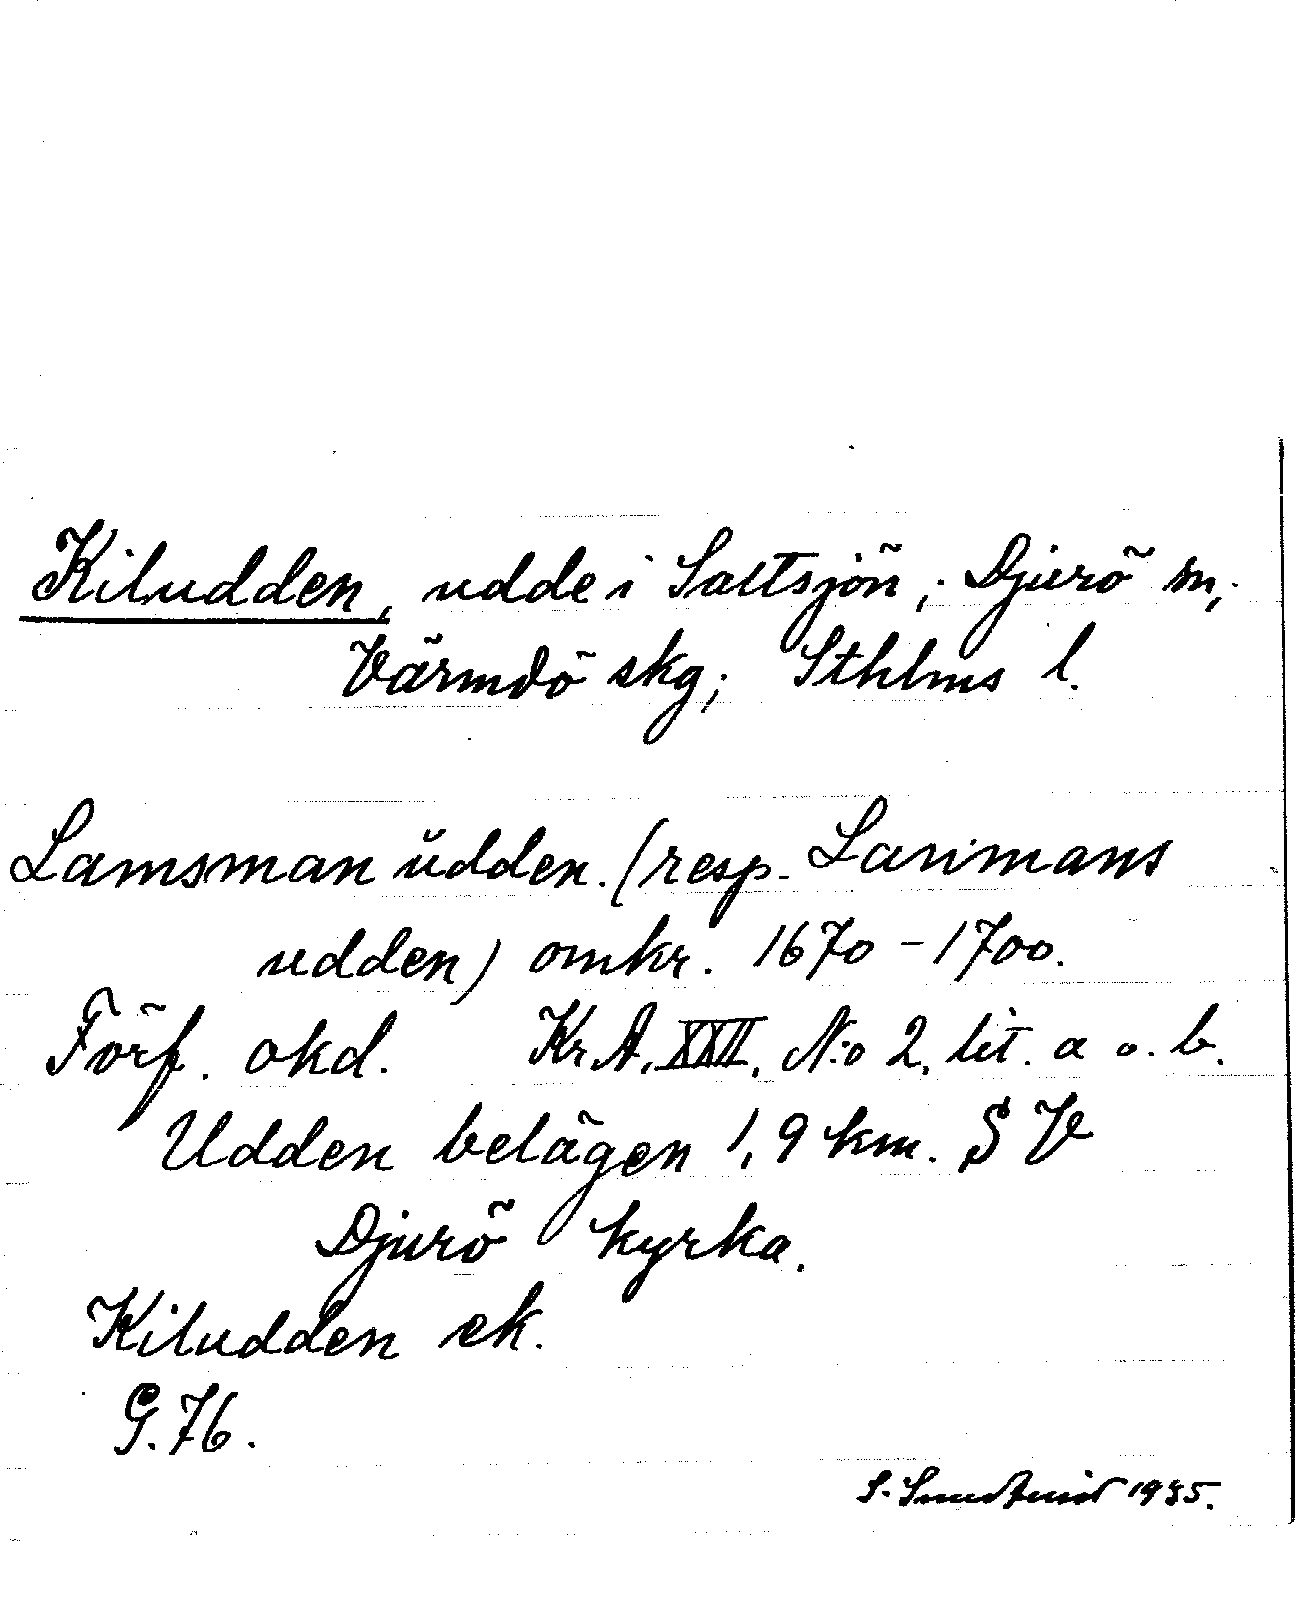 Kiludden, udde i Saltsjön; Djurö sn,
Värmdö skg; Sthlms l.
Lamsman udden. (resp. Larimans
udden) omkr. 1670-1700.
Förf. okd. Kr A. XXII, N:o 2, lit. a o. b.
Udden belägen 1,9 km. S V
Djurö kyrka.
Kiludden ek.
G. 76.
S. 1935.